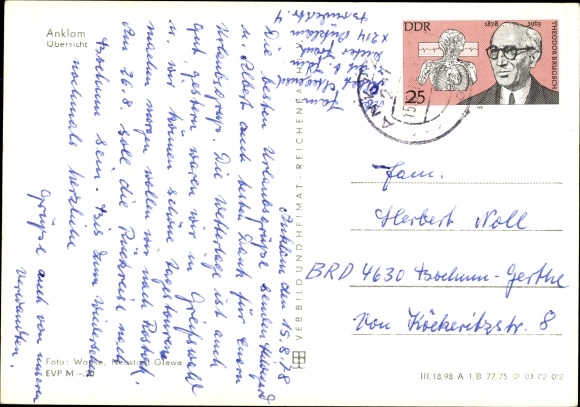 Anklam
Übersicht
Anklam den 15.8.78
Die besten Urlaubsgrüße senden
u. Albert auch besten Dank für euern
Urlaubsgruß. Die Wetterlage ist auch
gut, gestern waren wir in Greifswald
u. wir können schöne Tagestouren
machen morgen wollen wir nach Rostock.
Am 26.8. soll die Rückreise nach
Bochum sein. Bis dann Wiedersehen
nochmals herzliche
Grüße auch von unseren
Verwandten.
Fam.
Albert
x 214 Anklam
4
Foto: Neustadt Glewe
EVP M –,20
VEB BILD UND HEIMAT · REICHENBACH
DDR
1878 1963
THEODOR BRUGSCH
25
Fam.
Herbert Noll
BRD 4630 Bochum-Gerthe
Von Köckeritzstr. 8
III.18.98 A 1 B 77.75 01 03 02 012